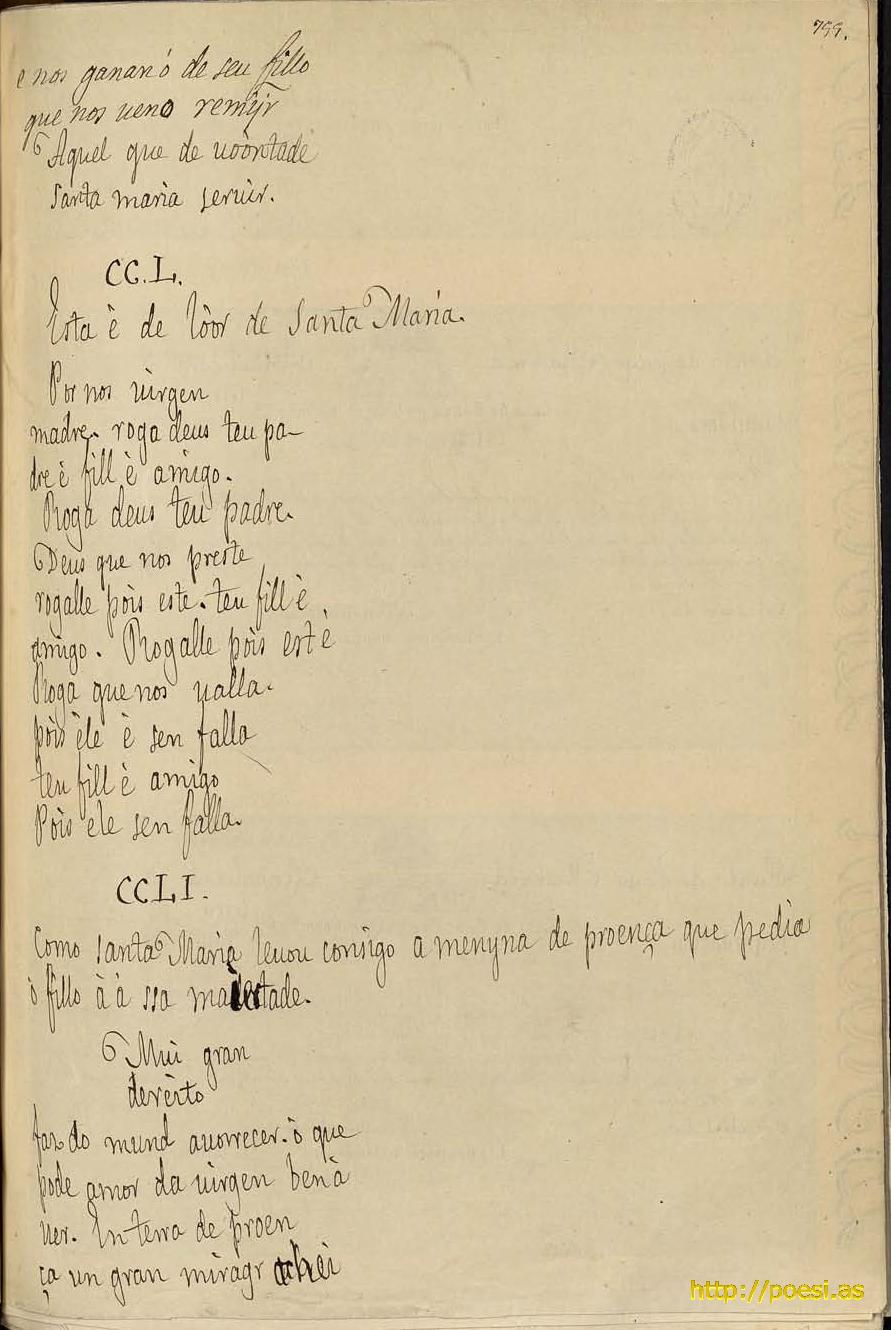 799.
e nos ganan ó de seu fillo
que nos ueno remĩjr
Aquel que de uòontade
Santa maria seruir.
CC.L.
Esta è de lòor de Santa Maria.
Por nos uirgen
madre. roga deus teu pa-
dre è fill è amigo.
Roga deus teu padre.
Deus que nos preste
rogalle pòis este. teu fill è
amigo. Rogalle pòis estè
Roga que nos ualla.
pòis èle è sen falla
teu fill è amigo
Pòis ele sen falla.
CCLI.
Como Santa Maria leuou consigo a menyna de proença que pedia
ò fillo àà ssa maiestade.
Mui gran
derèito
faz do mund auorrecer. ò que
pode amor da uirgen ben à
uer. En terra de proen
ça un gran miragr achei
http://poesi.as